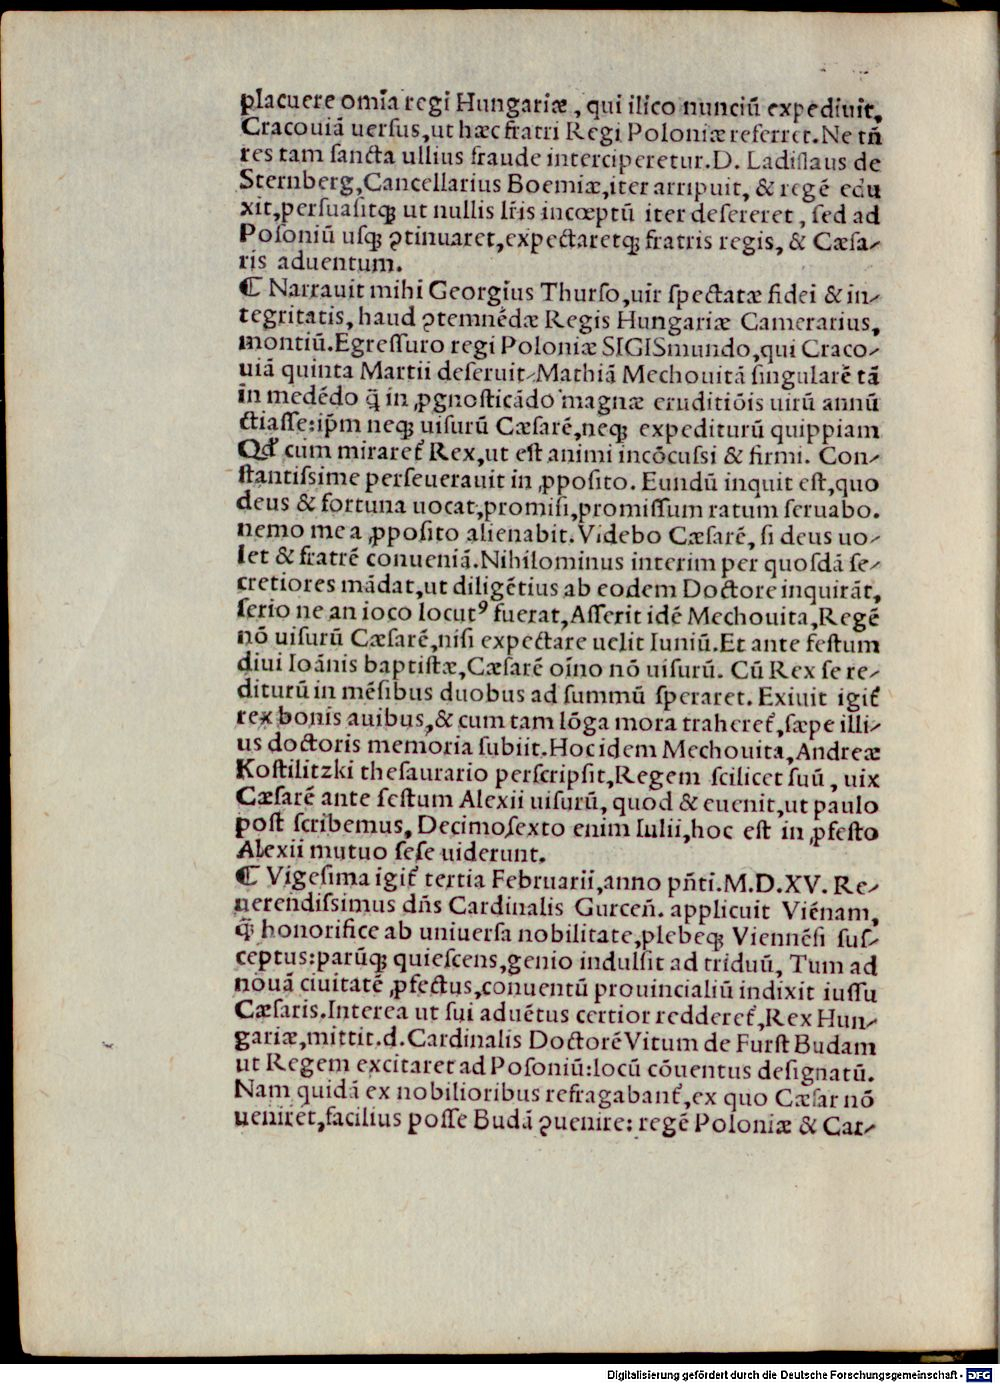 placuere omīa regi Hungariæ, qui ilico nunciū expediuit,
Cracouiā uersus, ut hæc fratri Regi Poloniæ referret. Ne tñ
res tam sancta ullius fraude interciperetur. D. Ladislaus de
Sternberg, Cancellarius Boemiæ, iter arripuit, & regē edu
xit, persuasitqꝫ ut nullis lr̄is incœptū iter desereret, sed ad
Posoniū usqꝫ ꝯtinuaret, expectaretqꝫ fratris regis, & Cæsa-
ris aduentum.
¶ Narrauit mihi Georgius Thurso, uir spectatæ fidei & in-
tegritatis, haud ꝯtemnēdæ Regis Hungariæ Camerarius,
montiū. Egressuro regi Poloniæ SIGISmundo, qui Craco-
uiā quinta Martii deseruit, Mathiā Mechouitā singularē tā
in medēdo q̄ in ꝓgnosticādo magnæ eruditiōis uirū annū
ctiasse: ip̄m neqꝫ uisurū Cæsarē, neqꝫ expediturū quippiam
Qđ cum miraret᷑ Rex, ut est animi incōcussi & firmi. Con-
stantissime perseuerauit in ꝓposito. Eundū inquit est, quo
deus & fortuna uocat, promisi, promissum ratum seruabo.
nemo me a ꝓposito alienabit. Videbo Cæsarē, si deus uo-
let & fratrē conueniā. Nihilominus interim per quosdā se-
cretiores mādat, ut diligētius ab eodem Doctore inquirāt,
serio ne an ioco locutꝰ fuerat, Asserit idē Mechouita, Regē
nō uisurū Cæsarē, nisi expectare uelit Iuniū. Et ante festum
diui Ioānis baptistæ, Cæsarē oīno nō uisurū. Cū Rex se re-
diturū in mēsibus duobus ad summū speraret. Exiuit igit᷑
rex bonis auibus, & cum tam lōga mora traheret᷑, sæpe illi-
us doctoris memoria subiit. Hoc idem Mechouita, Andreæ
Kostilitzki thesaurario perscripsit, Regem scilicet suū, uix
Cæsarē ante festum Alexii uisurū, quod & euenit, ut paulo
post scribemus, Decimosexto enim Iulii, hoc est in ꝓfesto
Alexii mutuo sese uiderunt.
¶ Vigesima igit᷑ tertia Februarii, anno pn̄ti. M.D.XV. Re-
uerendissimus dn̄s Cardinalis Gurceñ. applicuit Viēnam,
q̄ꝫ honorifice ab uniuersa nobilitate, plebeqꝫ Viennēsi sus-
ceptus: parūqꝫ quiescens, genio indulsit ad triduū, Tum ad
nouā ciuitatē ꝓfectus, conuentū prouincialiū indixit iussu
Cæsaris. Interea ut sui aduētus certior redderet᷑, Rex Hun-
gariæ, mittit. d. Cardinalis Doctorē Vitum de Furst Budam
ut Regem excitaret ad Posoniū: locū cōuentus designatū.
Nam quidā ex nobilioribus refragabant᷑, ex quo Cæsar nō
ueniret, facilius posse Budā ꝯuenire: regē Poloniæ & Car-
Digitalisierung gefördert durch die Deutsche Forschungsgemeinschaft - DFG